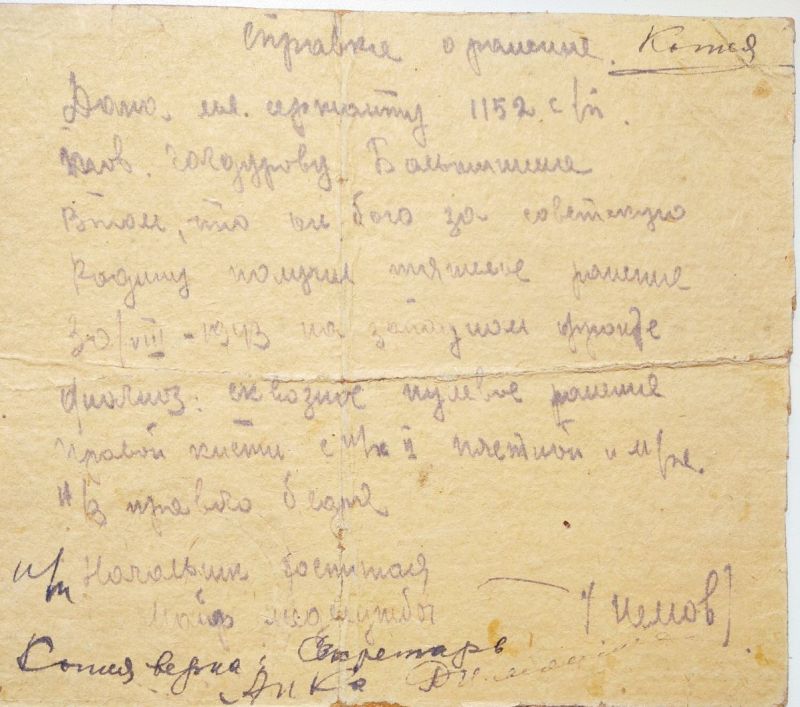 Справка о ранение. Копия
Дана мл. сержанту 1152 с/п.
тов. Гагдурову
в том, что он бою за советскую
Родину получил тяжелое ранение
30/VIII - 1943 на западном фронте
Диагноз: сквозное пулевое ранение
правой кисти с п/к II пястной и м/ж.
н/з правого бедра
п/п Начальник госпиталя
Майор медслужбы / Чемов /.
Копия верна: Секретарь